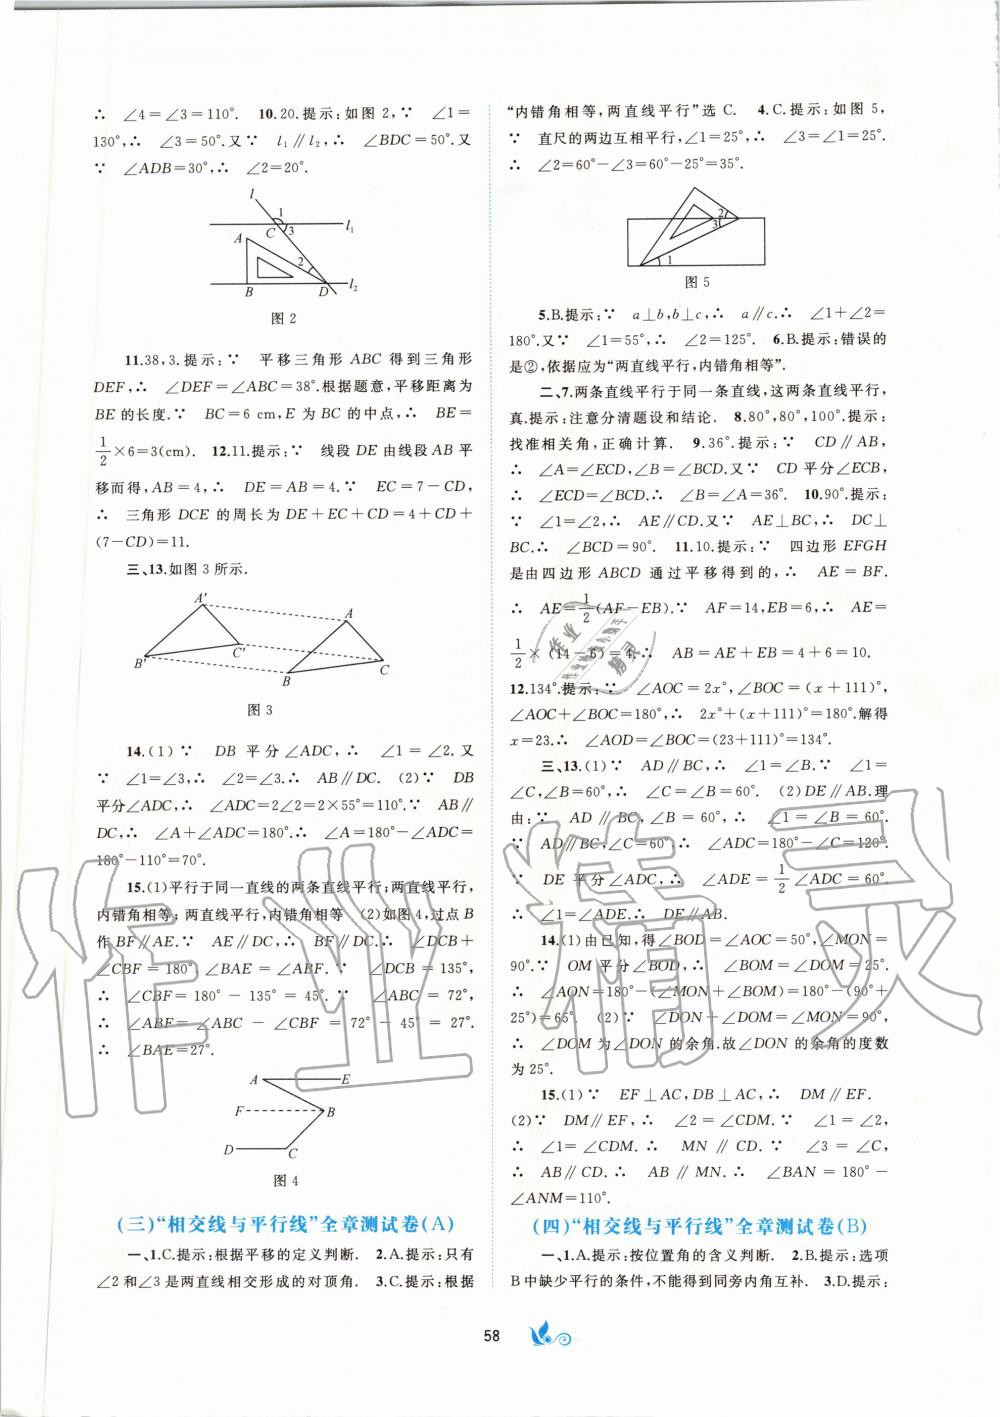 ∴ ∠4=∠3=110°. 10.20.提示:如图 2,∵ ∠1=
130°,∴ ∠3=50°.又∵ l₁∥l₂,∴ ∠BDC=50°.又
∵ ∠ADB=30°,∴ ∠2=20°.
l
1
C
3
l₁
A
2
B
D
l₂
图 2
11.38,3.提示:∵ 平移三角形 ABC 得到三角形
DEF,∴ ∠DEF=∠ABC=38°.根据题意,平移距离为
BE 的长度.∵ BC=6 cm,E 为 BC 的中点,∴ BE=
1/2×6=3(cm). 12.11.提示:∵ 线段 DE 由线段 AB 平
移而得,AB=4,∴ DE=AB=4.∵ EC=7-CD,
∴ 三角形 DCE 的周长为 DE+EC+CD=4+CD+
(7-CD)=11.
三、13.如图 3 所示.
A′
A
B′
C′
B
C
图 3
14.(1)∵ DB 平分∠ADC,∴ ∠1=∠2.又
∵ ∠1=∠3,∴ ∠2=∠3.∴ AB∥DC. (2)∵ DB
平分∠ADC,∴ ∠ADC=2∠2=2×55°=110°.∵ AB∥
DC,∴ ∠A+∠ADC=180°.∴ ∠A=180°-∠ADC=
180°-110°=70°.
15.(1)平行于同一直线的两条直线平行;两直线平行,
内错角相等;两直线平行,内错角相等 (2)如图 4,过点 B
作 BF∥AE.∵ AE∥DC,∴ BF∥DC.∴ ∠DCB+
∠CBF=180°,∠BAE=∠ABF.∵ ∠DCB=135°,
∴ ∠CBF=180°-135°=45°.∵ ∠ABC=72°,
∴ ∠ABF=∠ABC-∠CBF=72°-45°=27°.
∴ ∠BAE=27°.
A
E
F
B
D
C
图 4
(三)“相交线与平行线”全章测试卷(A)
一、1.C.提示:根据平移的定义判断. 2.A.提示:只有
∠2和∠3是两直线相交形成的对顶角. 3.C.提示:根据
“内错角相等,两直线平行”选 C. 4.C.提示:如图 5,
∵ 直尺的两边互相平行,∠1=25°,∴ ∠3=∠1=25°.
∴ ∠2=60°-∠3=60°-25°=35°.
2
3
1
图 5
5.B.提示:∵ a⊥b,b⊥c,∴ a∥c.∴ ∠1+∠2=
180°.又∵ ∠1=55°,∴ ∠2=125°. 6.B.提示:错误的
是②,依据应为“两直线平行,内错角相等”.
二、7.两条直线平行于同一条直线,这两条直线平行,
真.提示:注意分清题设和结论. 8.80°,80°,100°.提示:
找准相关角,正确计算. 9.36°.提示:∵ CD∥AB,
∴ ∠A=∠ECD,∠B=∠BCD.又∵ CD 平分∠ECB,
∴ ∠ECD=∠BCD.∴ ∠B=∠A=36°. 10.90°.提示:
∵ ∠1=∠2,∴ AE∥CD.又∵ AE⊥BC,∴ DC⊥
BC.∴ ∠BCD=90°. 11.10.提示:∵ 四边形 EFGH
是由四边形 ABCD 通过平移得到的,∴ AE=BF.
∴ AE=1/2(AF-EB).∵ AF=14,EB=6,∴ AE=
1/2×(14-6)=4.∴ AB=AE+EB=4+6=10.
12.134°.提示:∵ ∠AOC=2x°,∠BOC=(x+111)°,
∠AOC+∠BOC=180°,∴ 2x°+(x+111)°=180°.解得
x=23.∴ ∠AOD=∠BOC=(23+111)°=134°.
三、13.(1)∵ AD∥BC,∴ ∠1=∠B.∵ ∠1=
∠C,∠B=60°,∴ ∠C=∠B=60°. (2)DE∥AB.理
由:∵ AD∥BC,∠B=60°,∴ ∠1=∠B=60°.
∵ AD∥BC,∠C=60°,∴ ∠ADC=180°-∠C=120°.
∵ DE 平分∠ADC,∴ ∠ADE=1/2∠ADC=60°.
∴ ∠1=∠ADE.∴ DE∥AB.
14.(1)由已知,得∠BOD=∠AOC=50°,∠MON=
90°.∵ OM 平分∠BOD,∴ ∠BOM=∠DOM=25°.
∴ ∠AON=180°-(∠MON+∠BOM)=180°-(90°+
25°)=65°. (2)∵ ∠DON+∠DOM=∠MON=90°,
∴ ∠DOM 为∠DON 的余角.故∠DON 的余角的度数
为 25°.
15.(1)∵ EF⊥AC,DB⊥AC,∴ DM∥EF.
(2)∵ DM∥EF,∴ ∠2=∠CDM.∵ ∠1=∠2,
∴ ∠1=∠CDM.∴ MN∥CD.∵ ∠3=∠C,
∴ AB∥CD.∴ AB∥MN.∴ ∠BAN=180°-
∠ANM=110°.
(四)“相交线与平行线”全章测试卷(B)
一、1.A.提示:按位置角的含义判断. 2.B.提示:选项
B 中缺少平行的条件,不能得到同旁内角互补. 3.D.提示:
58
作业精灵